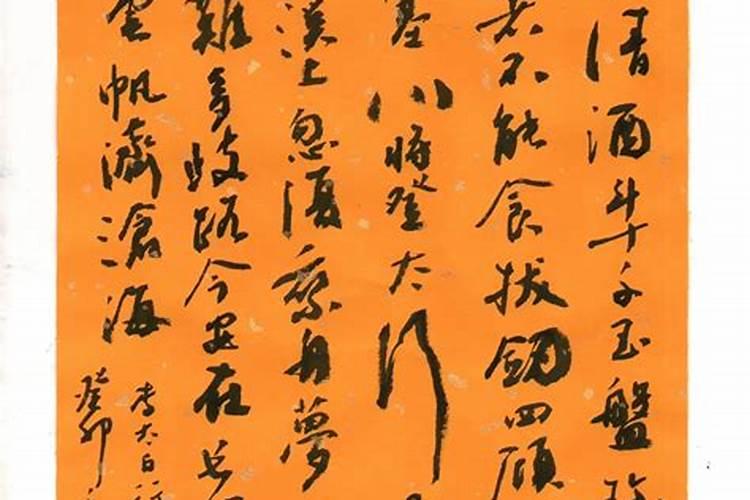 清酒斗十千玉盤珍
箸不能食拔劍四顧
塞川將登太行
溪上忽復乘舟夢
難多歧路今安在長
雲帆濟滄海
李太白行
癸卯